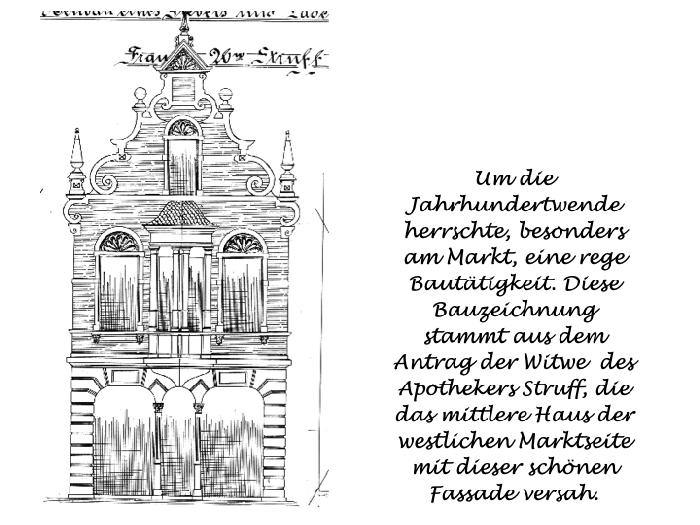 Frau Ww Struff
Um die
Jahrhundertwende
herrschte, besonders
am Markt, eine rege
Bautätigkeit. Diese
Bauzeichnung
stammt aus dem
Antrag der Witwe des
Apothekers Struff, die
das mittlere Haus der
westlichen Marktseite
mit dieser schönen
Fassade versah.